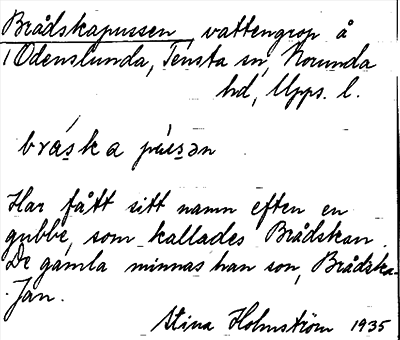 Brådskapussen, vattengrop å
i Odenslunda, Tensta sn, Norunda
hd, Upps. l.
bráska pússən
Har fått sitt namn efter en
gubbe, som kallades Brådskan.
De gamla minnas han son, Brådska-
Jan.
Stina Holmström 1935